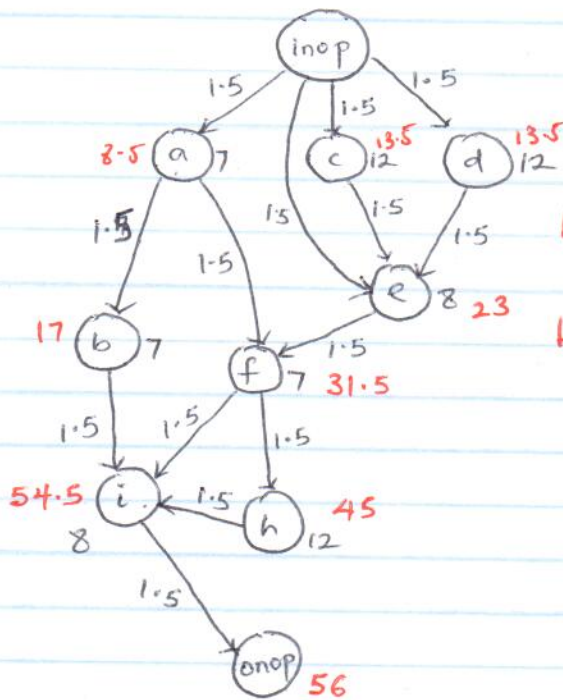 inop
1.5 1.5 1.5
8.5 a 7 13.5 c 12 13.5 d 12
1.5 1.5 1.5 1.5 1.5
e 8 23
17 b 7 1.5
f 7 31.5
1.5 1.5 1.5
54.5 i 8 1.5 h 12 45
1.5
onop
56